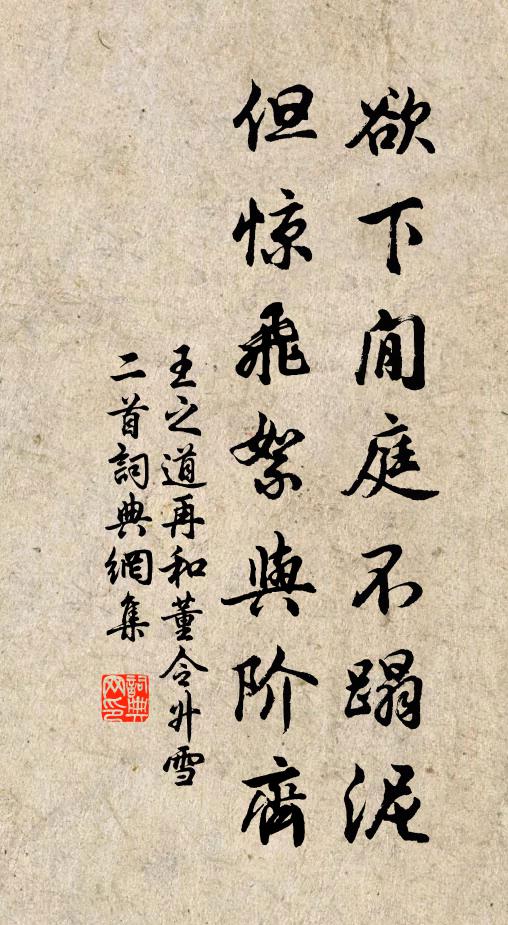 欲下閒庭不蹋泥
但惊飛絮與阶齊
王之道再和董令升雪
二首詞典網集
詞典
网印